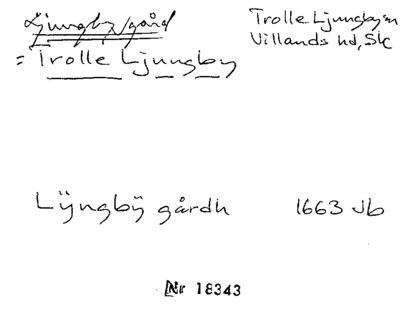 Ljungby gård
= Trolle Ljungby
Trolle Ljungby sn
Villands hd, Sk
Lÿngbÿ gårdh 1663 Jb
Nr 18343